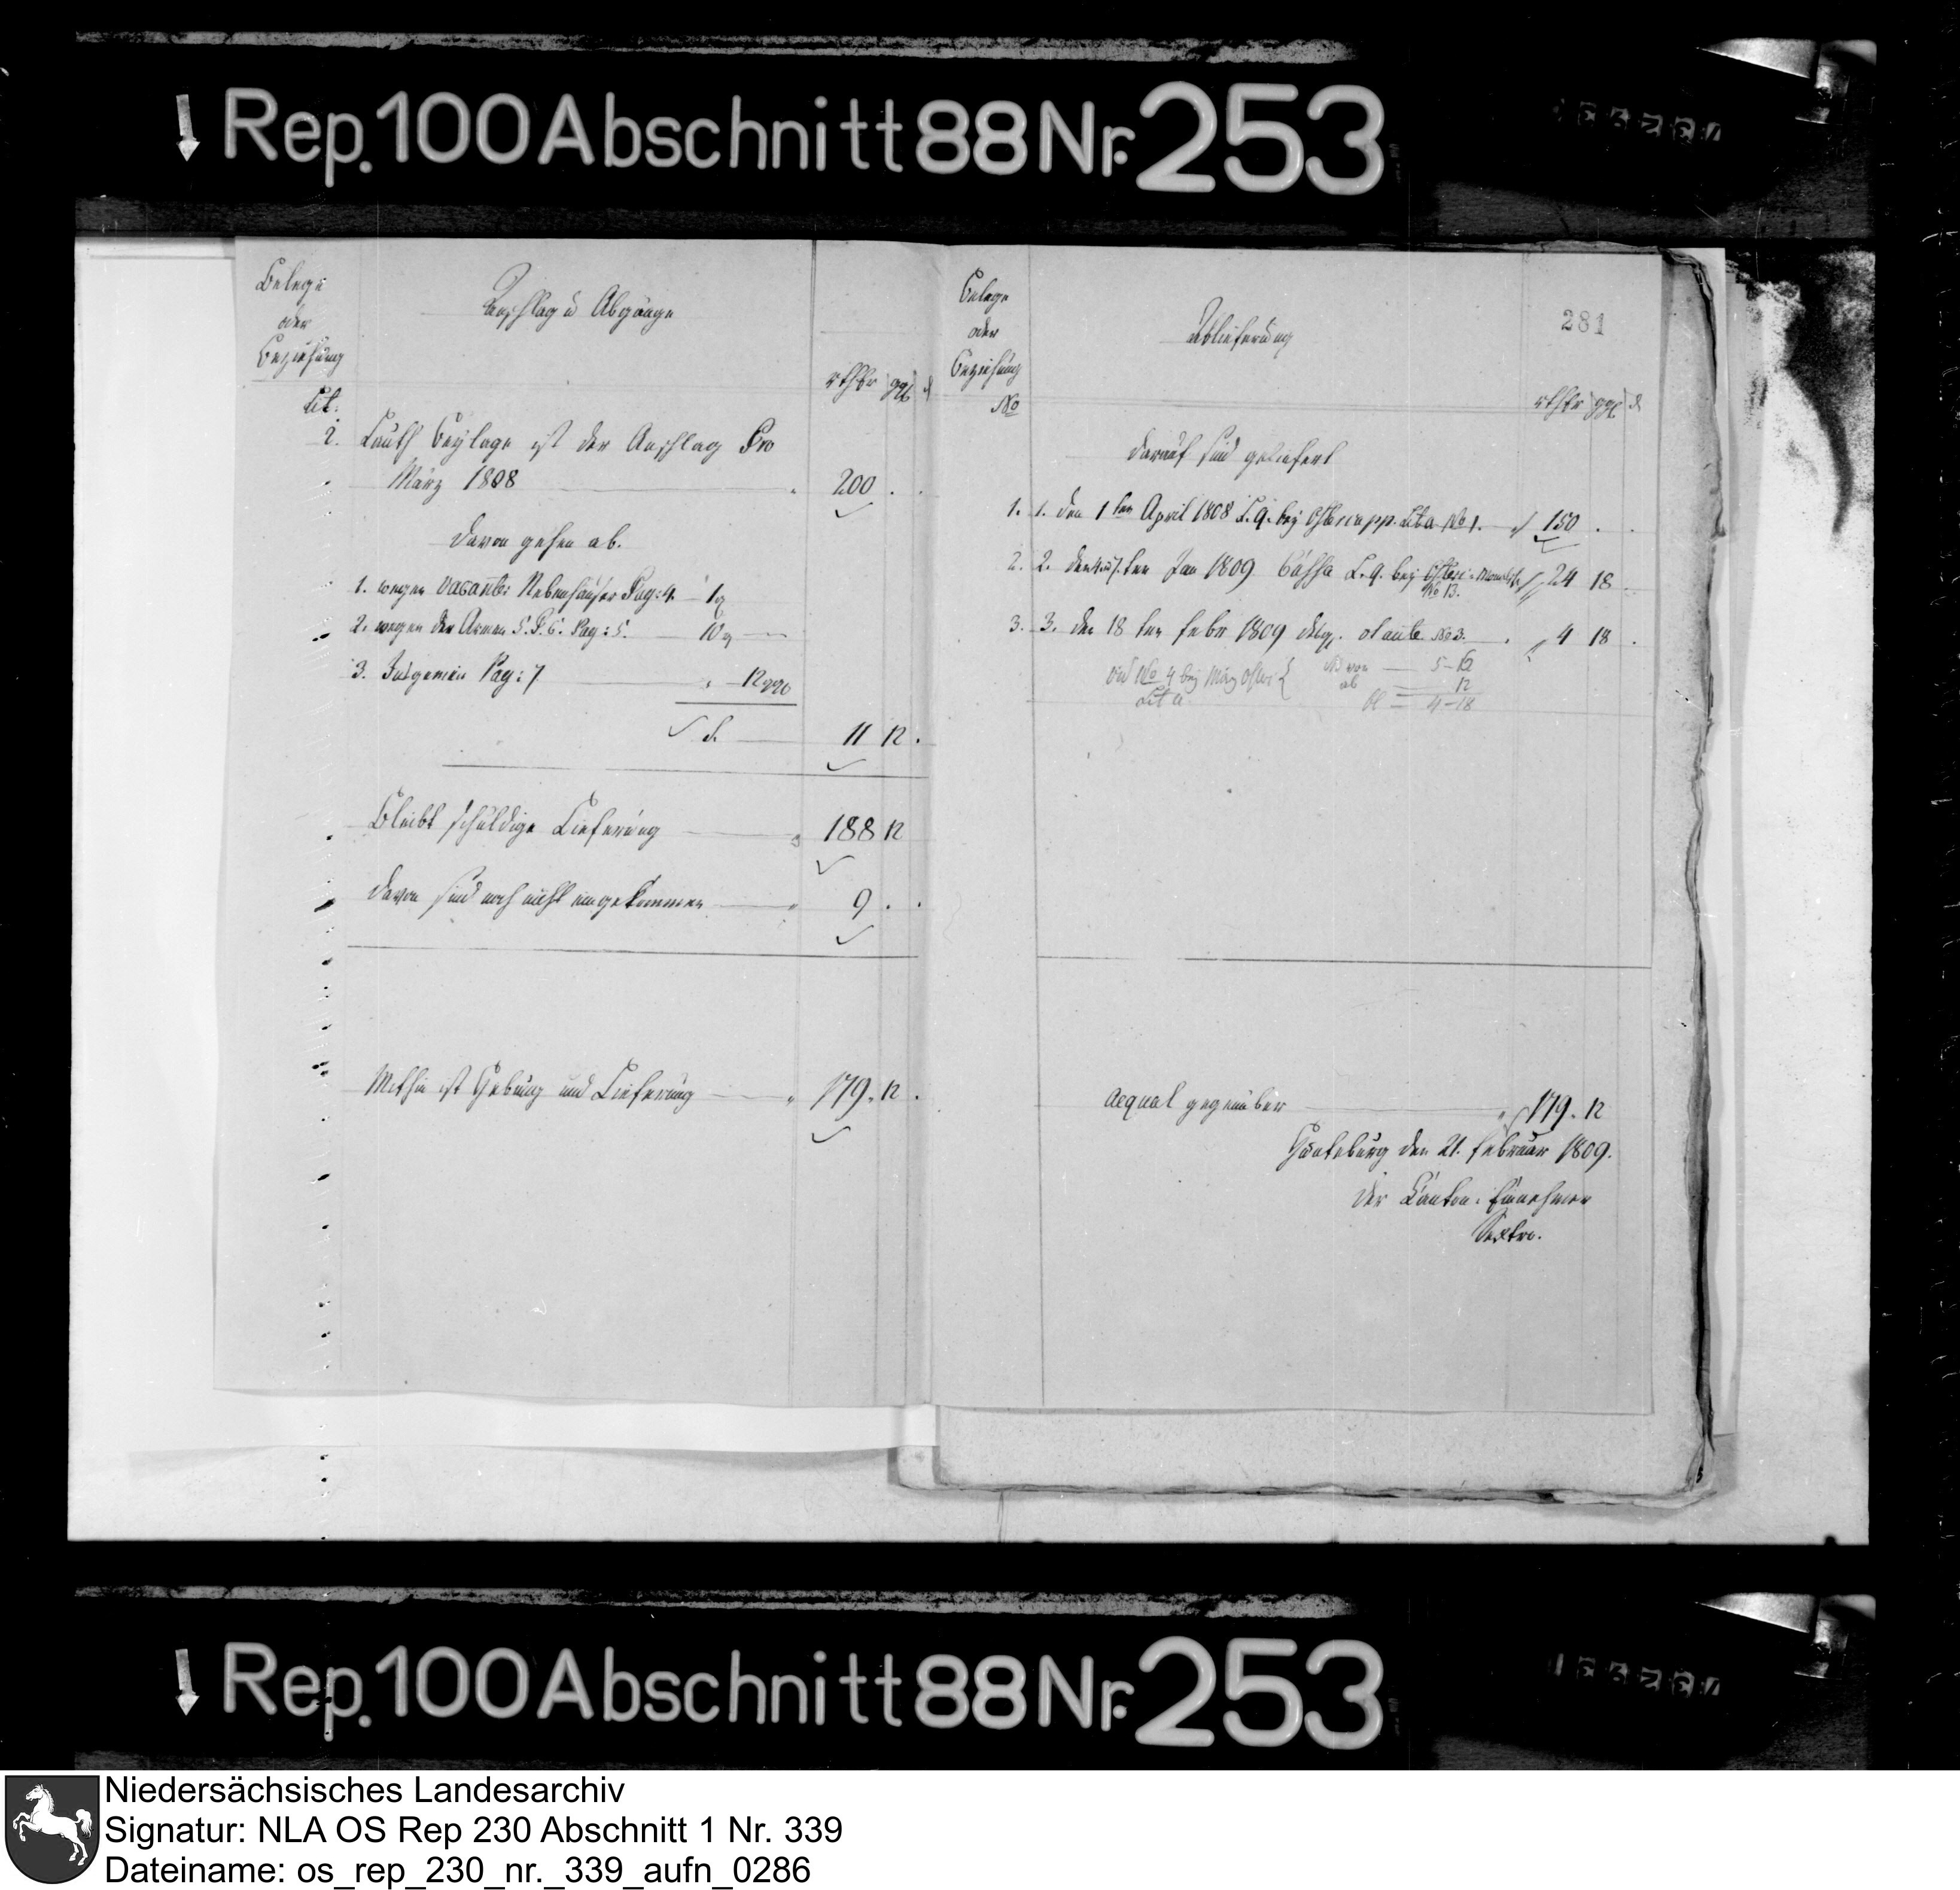 Rep. 100 Abschnitt 88 Nr. 253
Belege
oder
Beziehung
Lit:
Anschlag u Abgänge
rthlr ggl d
2. Lauth Beylage ist der Anschlag Pro
März 1808 200 . .
Davon gehen ab.
1. wegen vacante Nebenhäuser Pag: 4. 1
2. wegen der Armen Pag: 5. 10
3. Insgemein Pag: 7 12 ggl
S. 11 12 .
Bleibt schuldige Lieferung 188 12
Davon sind noch nicht eingekommen 9 . .
Mithin ist Hebung und Lieferung 179. 12 .
Belege
oder
Beziehung
No
Ablieferung
281
rthlr ggl d
Darauf sind geliefert
1. 1. den 1ten April 1808 L. q. bey Lit a No 1. 150 . .
2. 2. ten Jan 1809 L. q. bey No 13. 24 18 .
3. 3. den 18ten febr 1809 No 3. 4 18 .
No 4 bey May
Lit a
5-12
ab 12
bl = 4-18
aequal gegenüber 179. 12
den 21. februar 1809.
Der Canton: Einnehmer
Rep. 100 Abschnitt 88 Nr. 253
Niedersächsisches Landesarchiv
Signatur: NLA OS Rep 230 Abschnitt 1 Nr. 339
Dateiname: os_rep_230_nr._339_aufn_0286